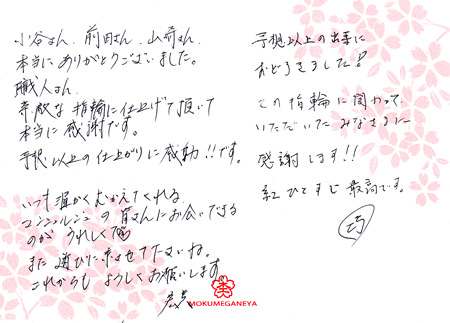 小谷さん、前田さん、山前さん、
本当にありがとうございました。
職人さん、
素敵な指輪に仕上げて頂いて
本当に感謝です。
予想以上の仕上がりに感動!!です。
いつも温かくむかえてくれる
コンシェルジュの皆さんにお会いできる
のがうれしくて
また遊びに来させて下さいね。
これからもよろしくお願いします
MOKUMEGANEYA
予想以上の出来に
おどろきました!
この指輪に関わって
いただいたみなさまに
感謝します!!
紅ひとすじ 最高です。